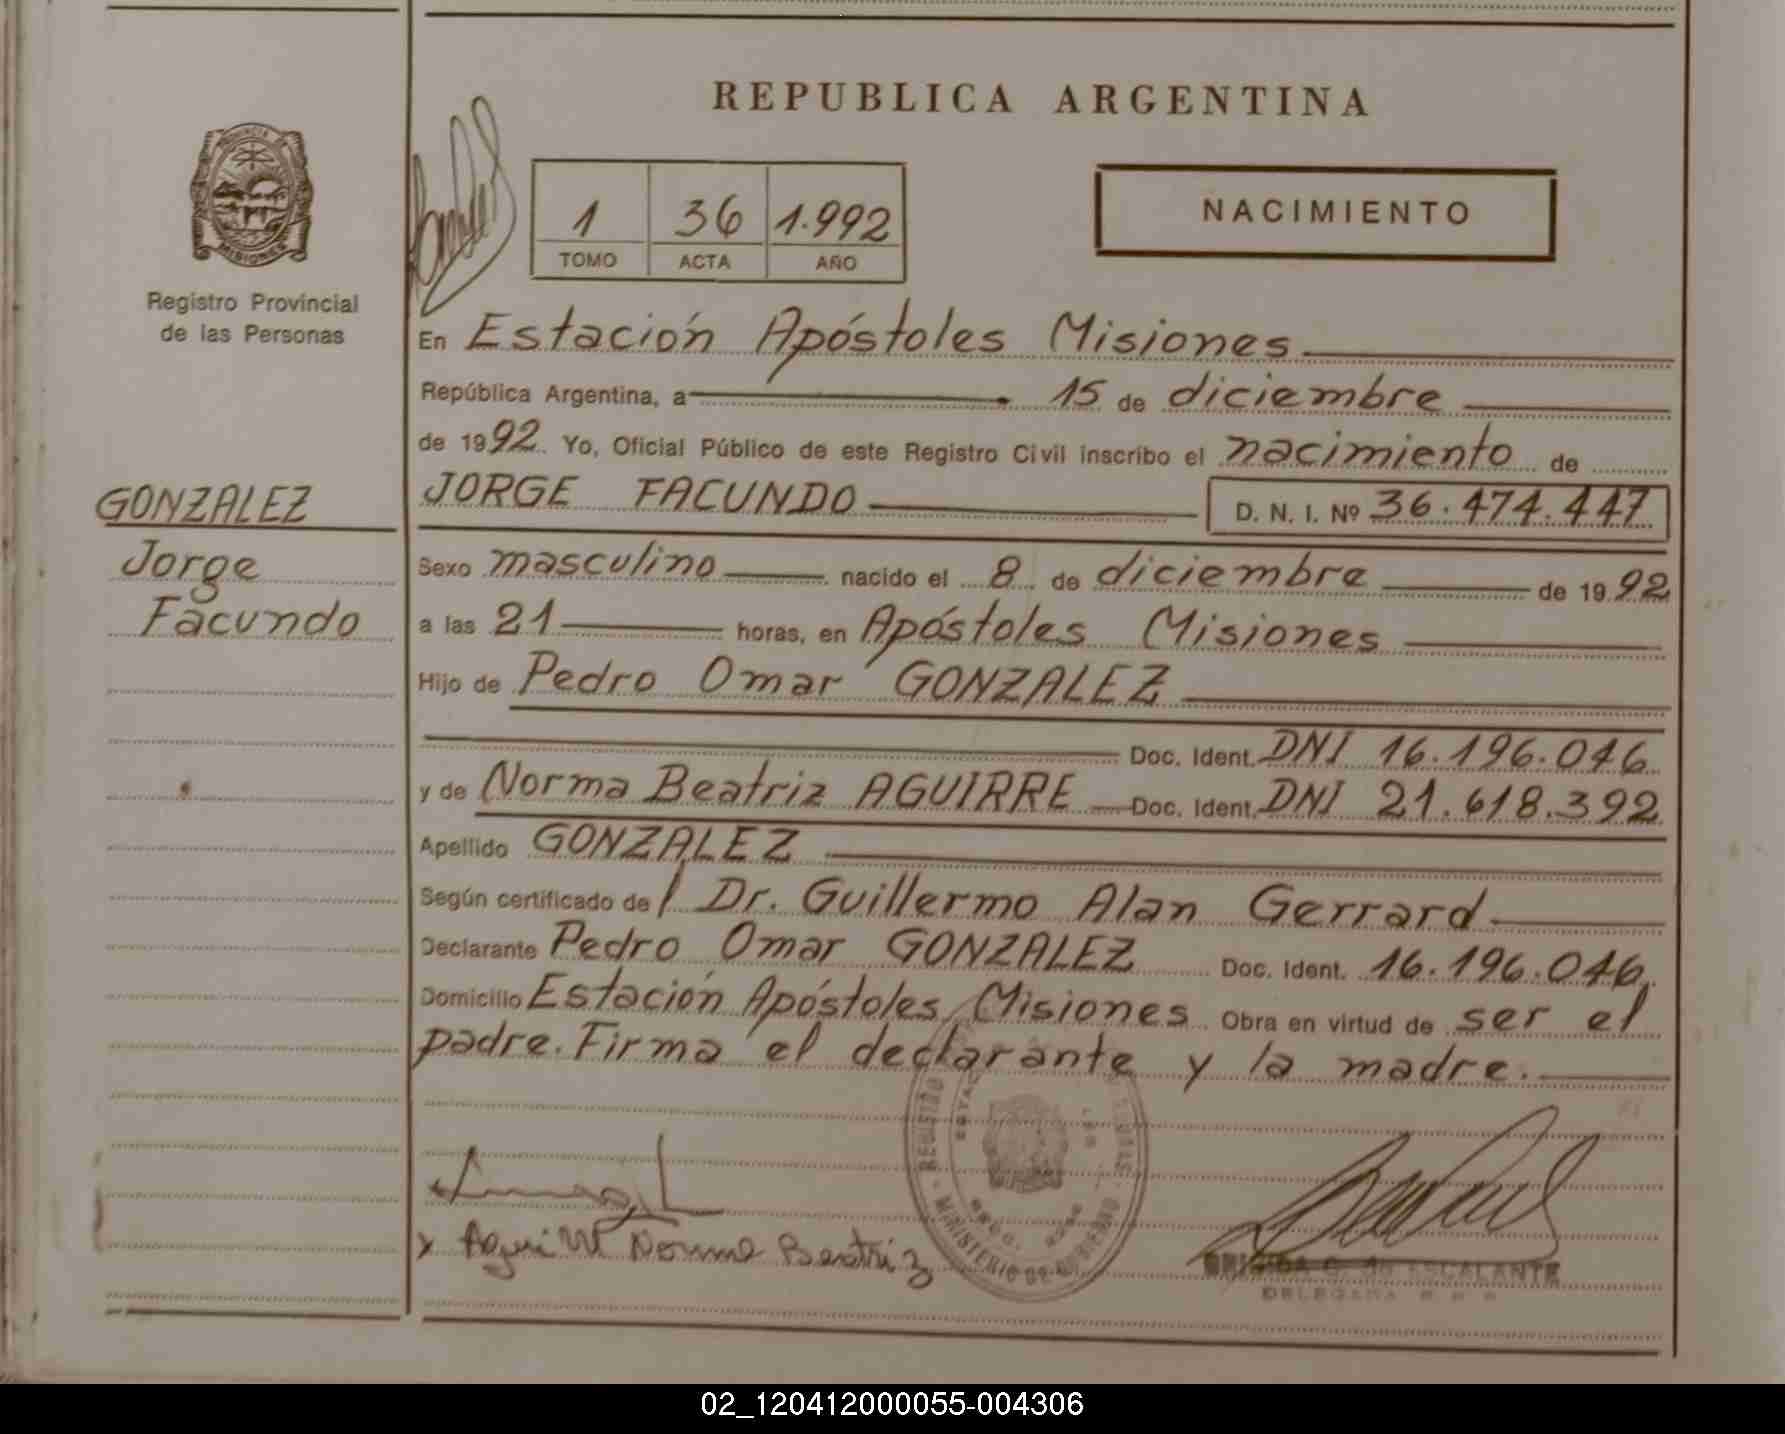 REPUBLICA ARGENTINA
PROVINCIA DE
MISIONES
Registro Provincial
de las Personas
1 36 1.992
TOMO ACTA AÑO
NACIMIENTO
En Estación Apóstoles Misiones
República Argentina, a 15 de diciembre
de 1992. Yo, Oficial Público de este Registro Civil inscribo el nacimiento de
GONZALEZ
Jorge
Facundo
JORGE FACUNDO D. N. I. Nº 36.474.447
Sexo masculino nacido el 8 de diciembre de 1992
a las 21 horas, en Apóstoles Misiones
Hijo de Pedro Omar GONZALEZ
Doc. Ident. DNI 16.196.046
y de Norma Beatriz AGUIRRE Doc. Ident. DNI 21.618.392
Apellido GONZALEZ
Según certificado de Dr. Guillermo Alan Gerrard
Declarante Pedro Omar GONZALEZ Doc. Ident. 16.196.046
Domicilio Estación Apóstoles Misiones Obra en virtud de ser el
padre. Firma el declarante y la madre.
REGISTRO
MINISTERIO DE GOBIERNO
x Norma Beatriz
ESCALANTE
DELEGADA
02_120412000055-004306